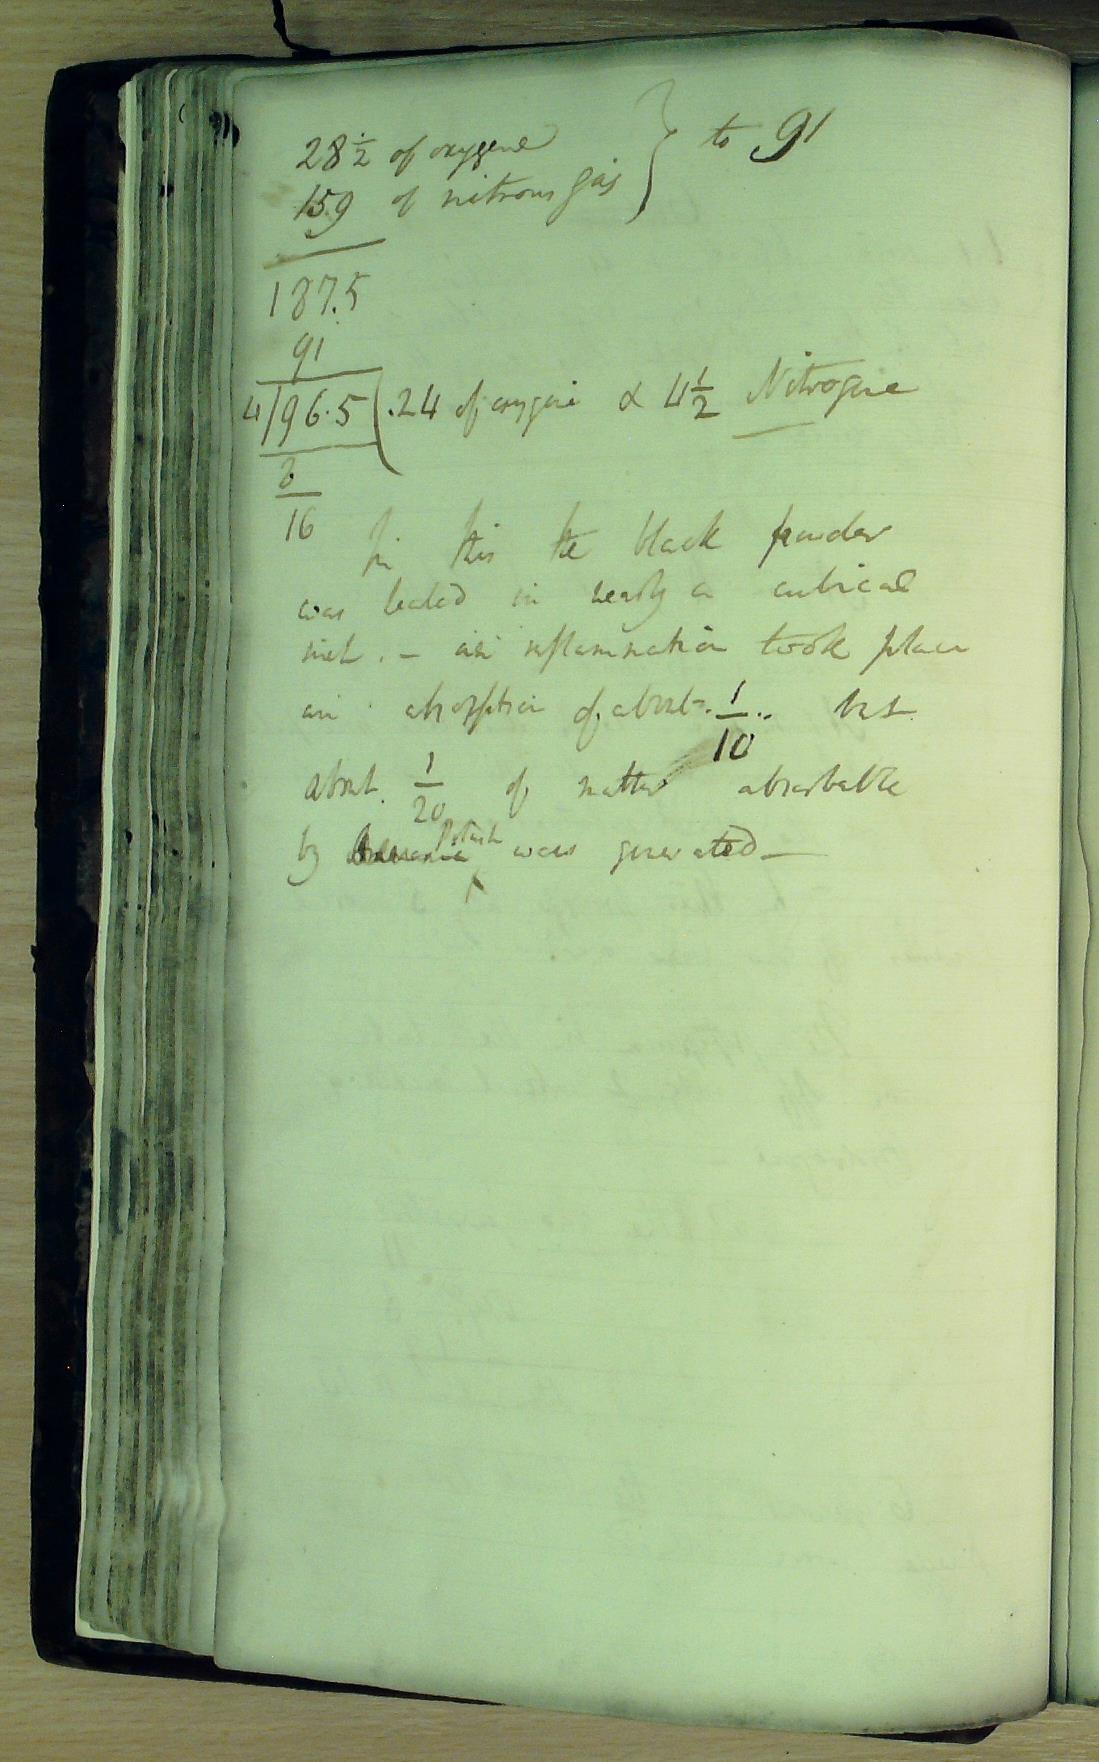 28½ of oxygene } to 91
159 of nitrous gas
187.5
91
4/96.5(.24 of oxygene & 4½ Nitrogene
8
16
In this the black powder
was heated in nearly a cubical
inch. - an inflammation took place
an absorption of about 1/10 .. but
about 1/20 of matter absorbable
Potash
by was generated —